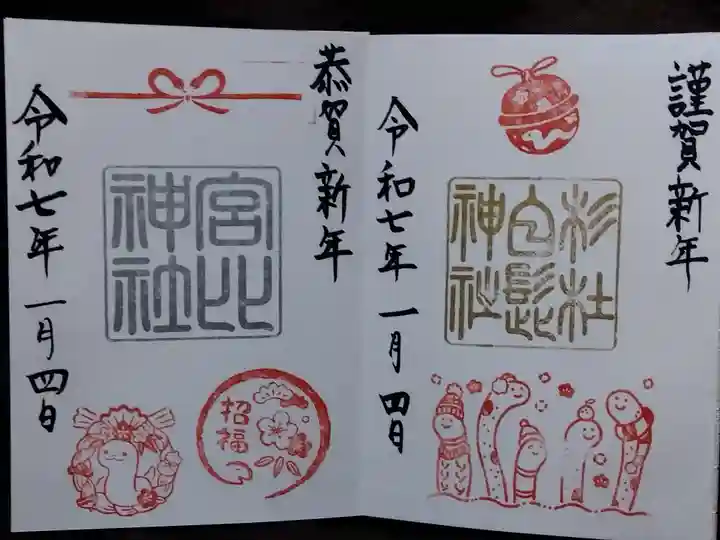 謹賀新年
杉杜
白髭
神社
令和七年 一月 四日
恭賀新年
宮比
神社
招福
令和七年 一月 四日